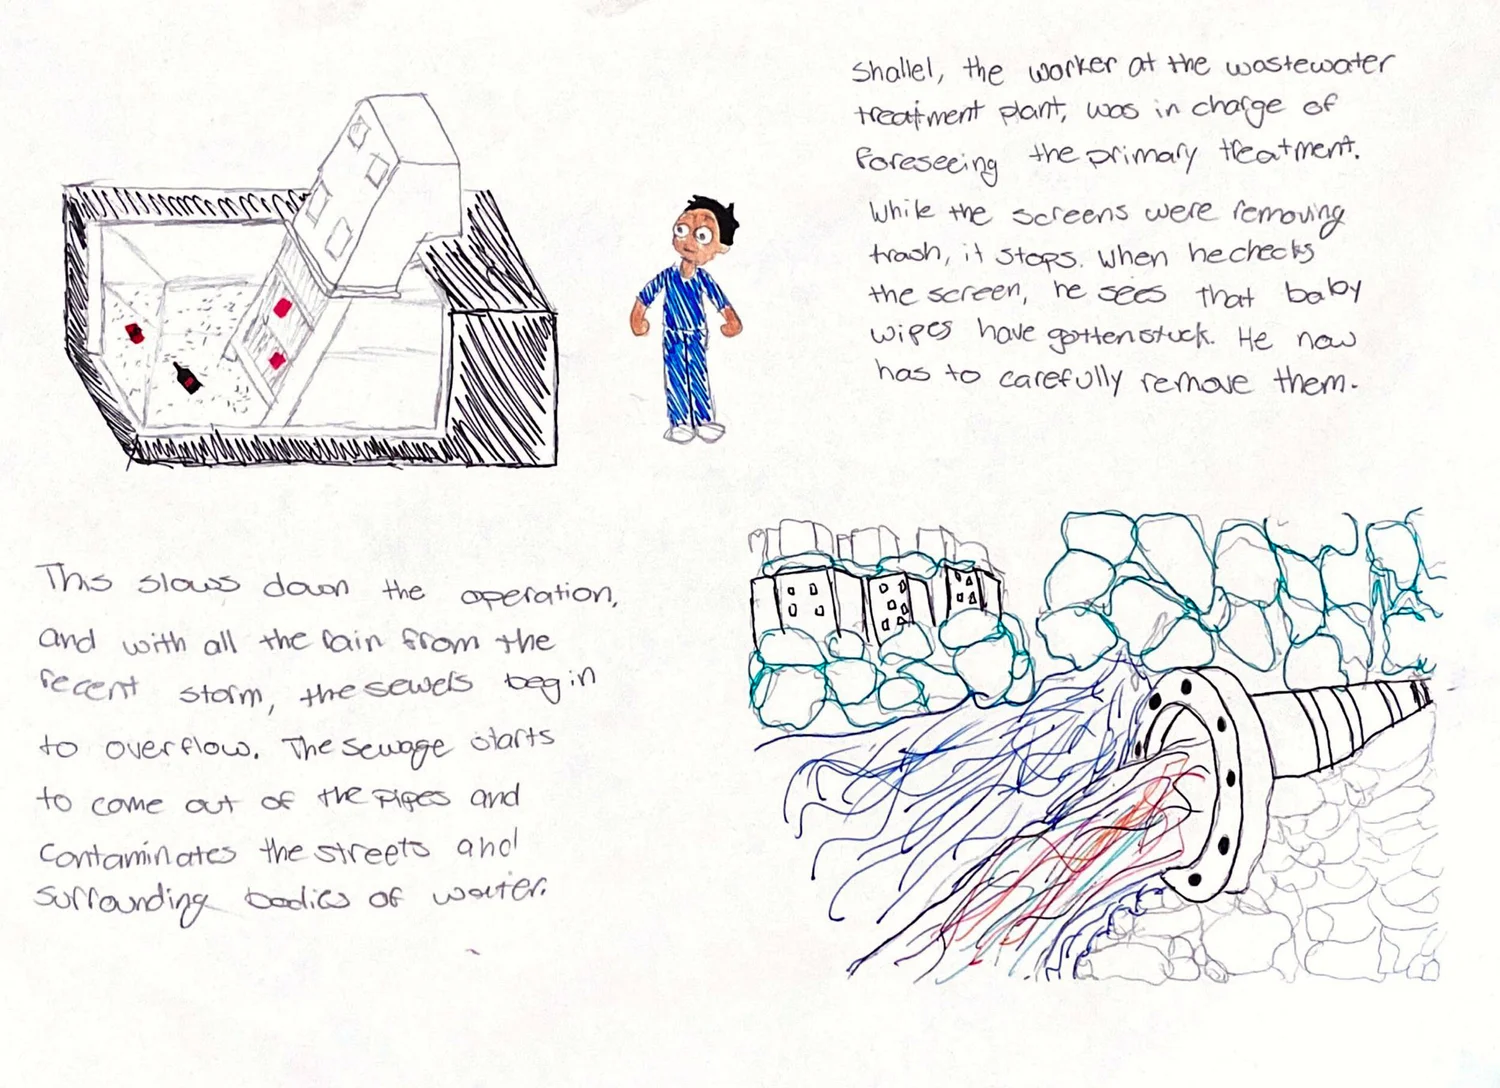 Shallel, the worker at the wastewater
treatment plant, was in charge of
foreseeing the primary treatment.
While the screens were removing
trash, it stops. When he checks
the screen, he sees that baby
wipes have gotten stuck. He now
has to carefully remove them.
This slows down the operation,
and with all the rain from the
recent storm, the sewers begin
to overflow. The sewage starts
to come out of the pipes and
contaminates the streets and
surrounding bodies of water.